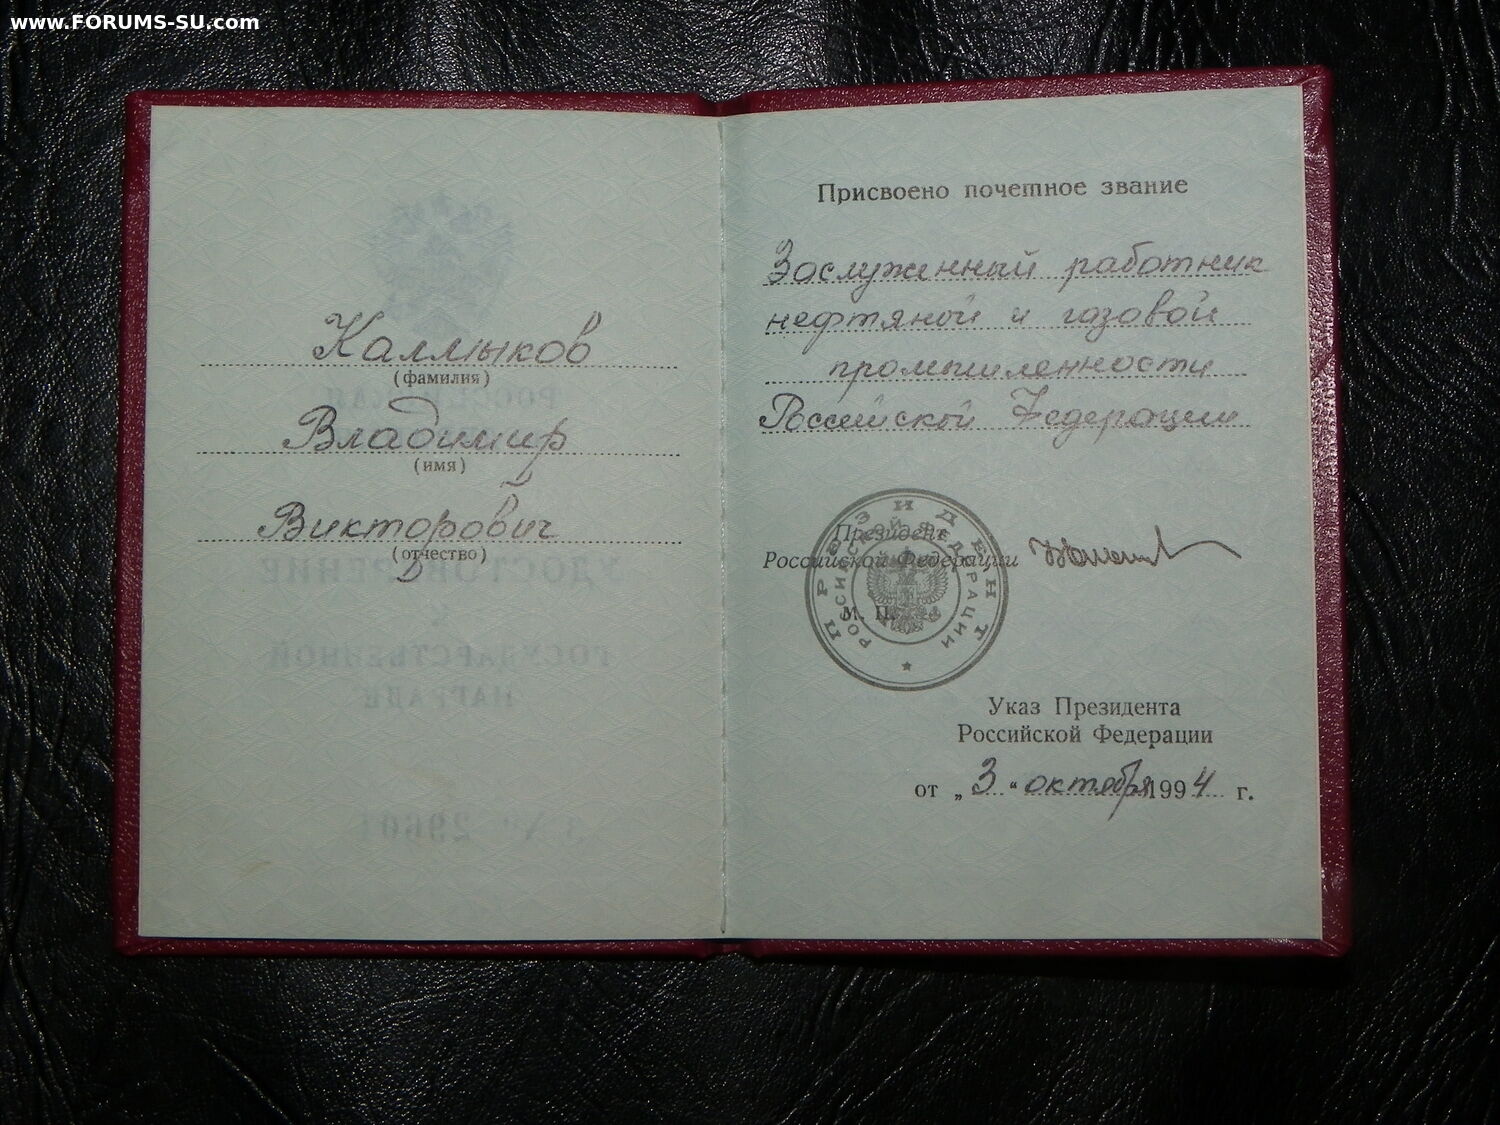 www.FORUMS-SU.com
Каллыков
(фамилия)
Владимир
(имя)
Викторович
(отчество)
Присвоено почетное звание
Заслуженный работник
нефтяной и газовой
промышленности
Российской Федерации
Президент
Российской Федерации
М. П.
ПРЕЗИДЕНТ
РОССИЙСКОЙ ФЕДЕРАЦИИ
Указ Президента
Российской Федерации
от „ 3 “ октября 1994 г.